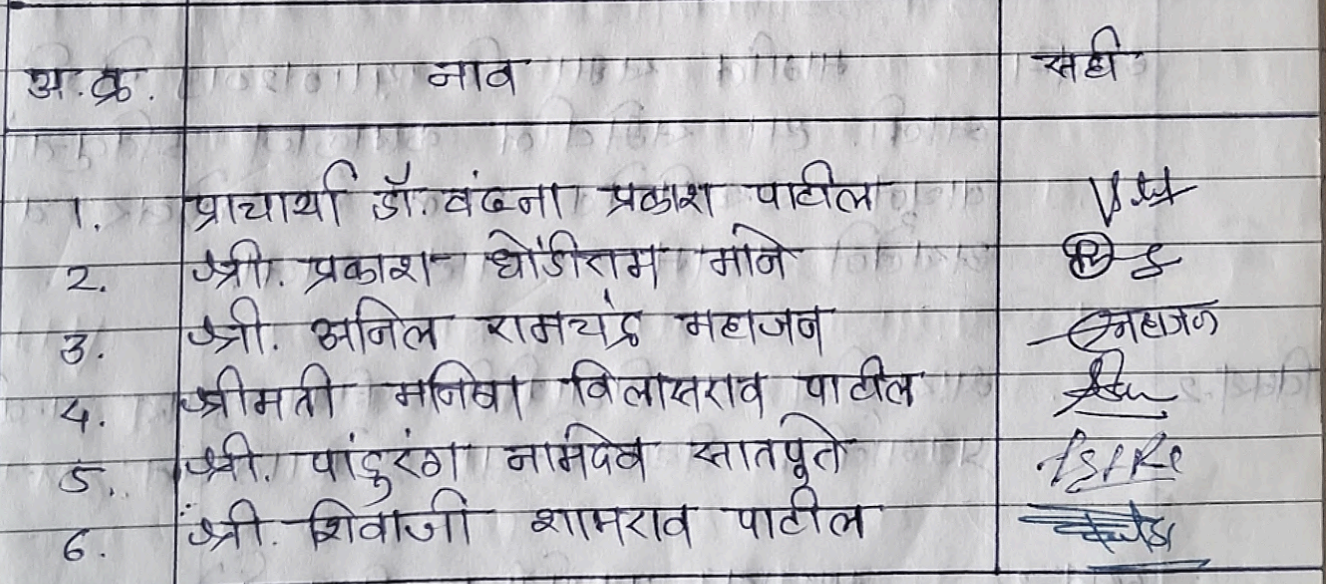 अ.क्र. नाव सही
1. प्राचार्या डॉ. वंदना प्रकाश पाटील
2. श्री. प्रकाश धोंडीराम माने
3. श्री. अनिल रामचंद्र महाजन महाजन
4. श्रीमती मनिषा विलासराव पाटील
5. श्री. पांडुरंग नामदेव सातपुते
6. श्री. शिवाजी शामराव पाटील